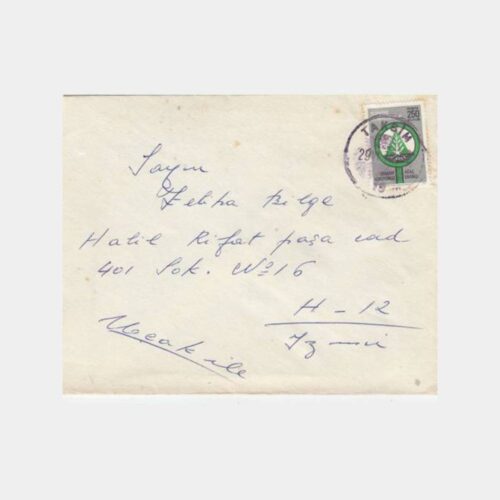 250
TAKSİM
29
Sayın
Zeliha Bilge
Halil Rifat paşa cad
401 Sok. No 16
H - 12
İzmir
Uçak ile